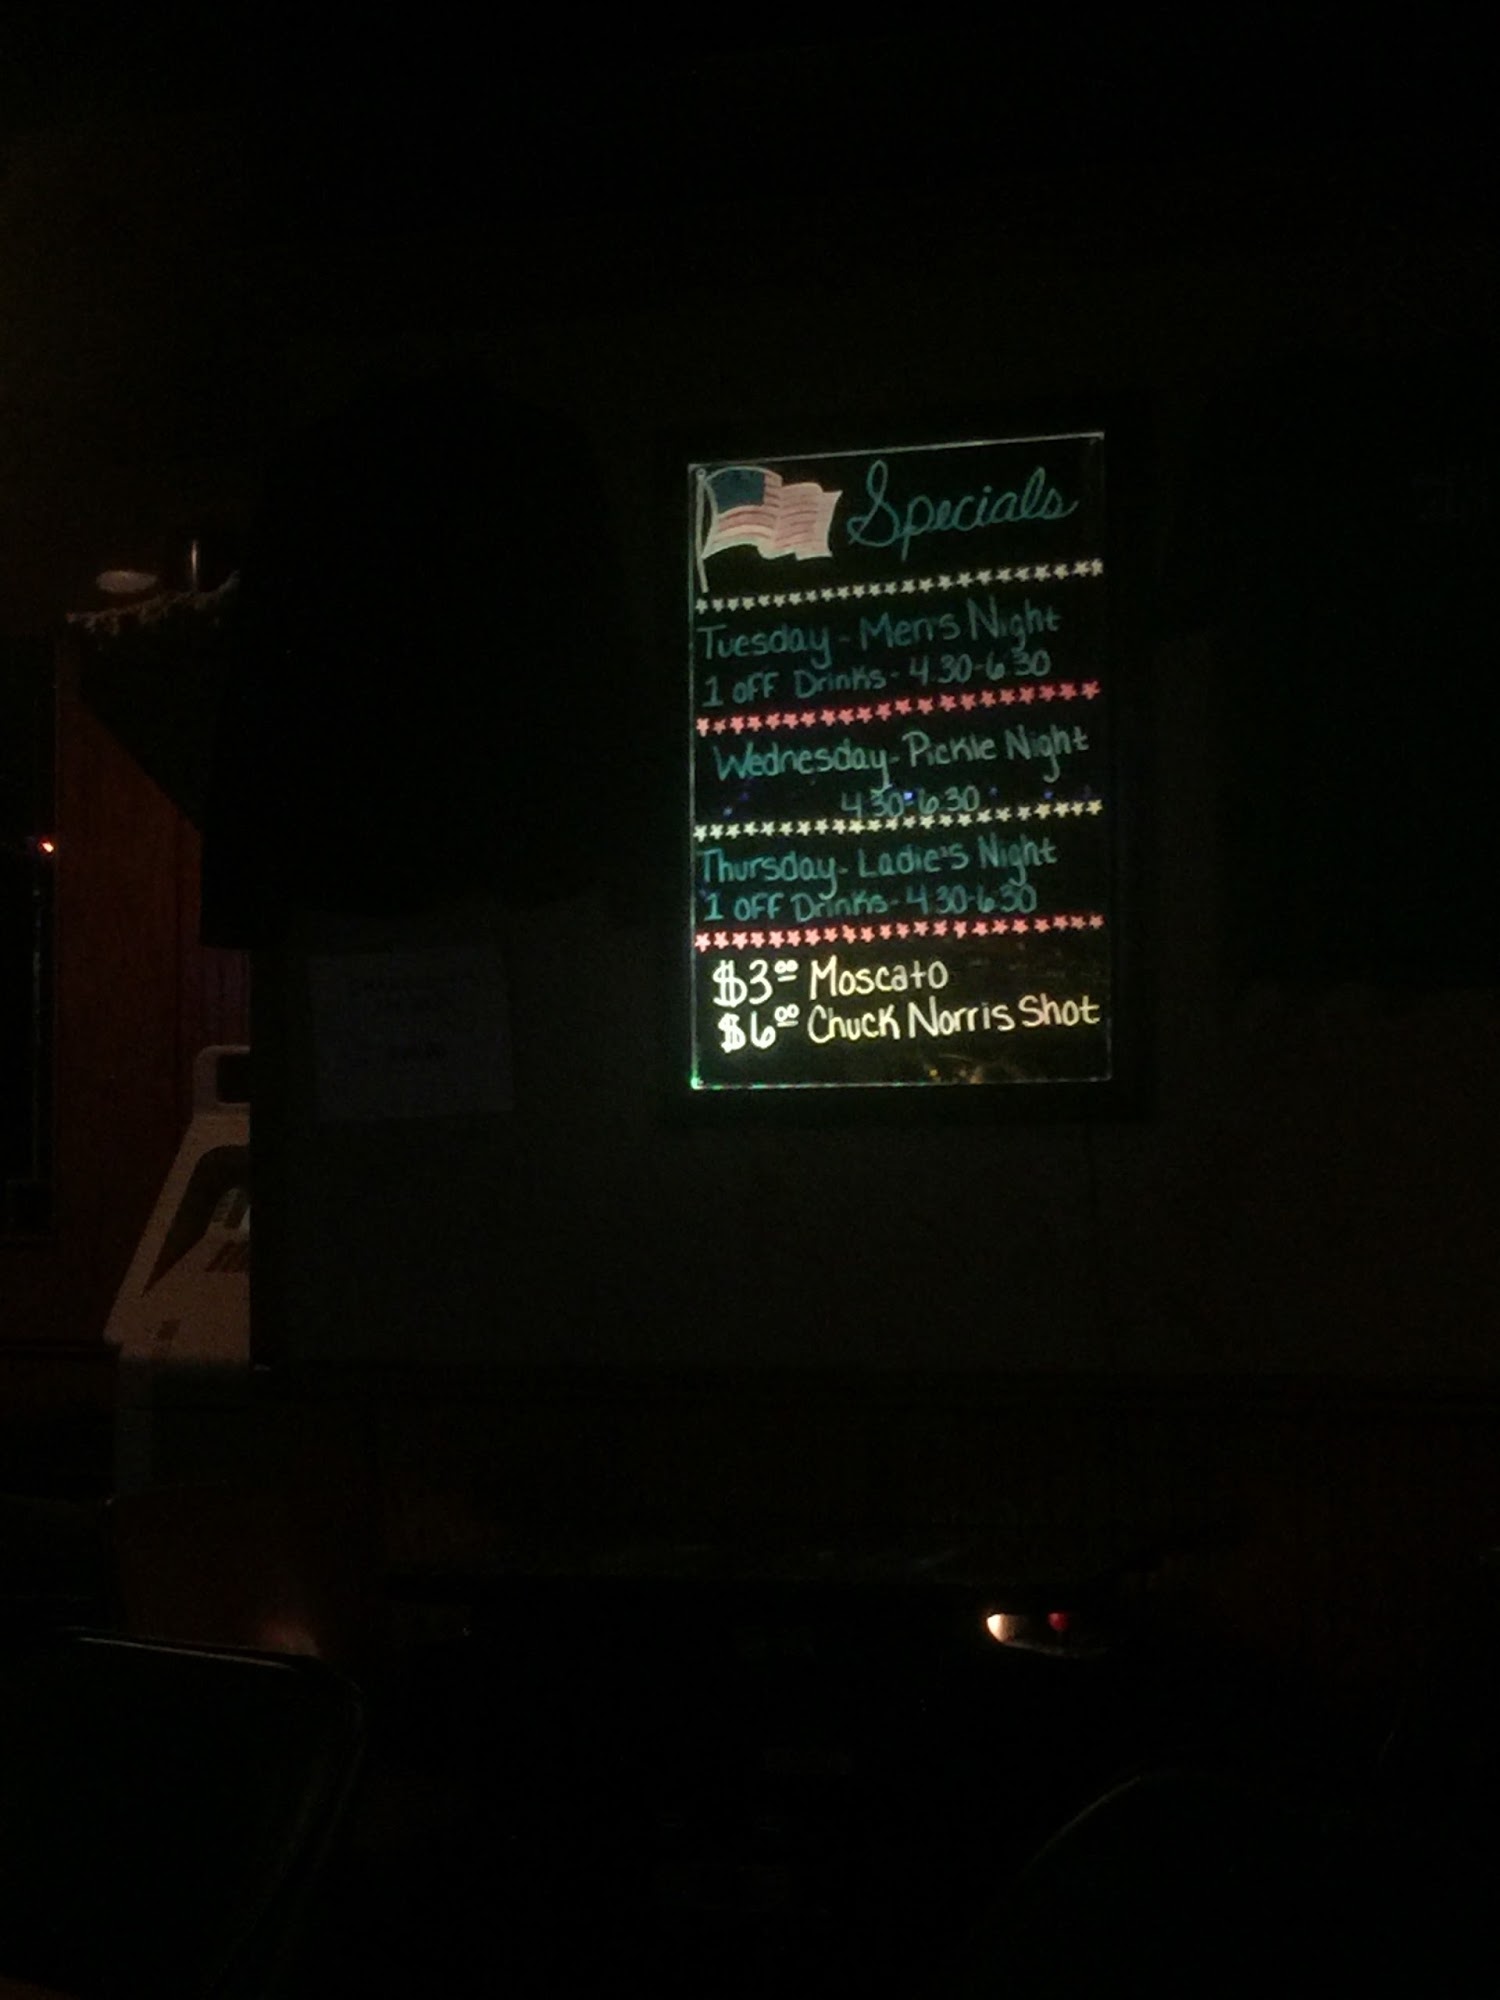 Specials
Tuesday - Men's Night
1 OFF Drinks - 4:30-6:30
Wednesday - Pickle Night
4:30-6:30
Thursday - Ladie's Night
1 OFF Drinks - 4:30-6:30
$3.00 Moscato
$6.00 Chuck Norris Shot